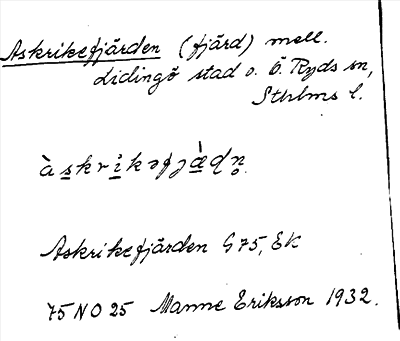 Askrikefjärden (fjärd) mell.
Lidingö stad o. Ö. Ryds sn,
Sthlms l.
àskrìkəfjæ̀ɖn̥
Askrikefjärden G 75, EK
75 NO 25 Manne Eriksson 1932.